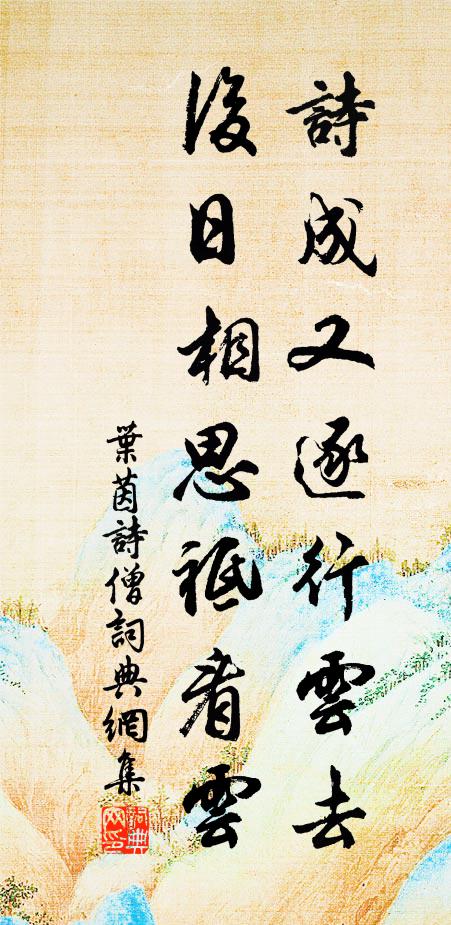 詩成又逐行雲去
後日相思祗看雲
葉茵詩僧詞典網集
詞典
网印